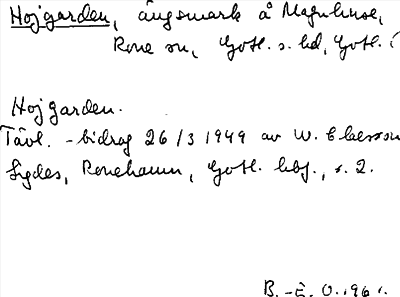 Hojgarden, ängsmark å Magnhuse,
Rone sn, Gotl. s. hd, Gotl. l
Hojgarden.
Tävl. -bidrag 26/3 1949 av W. Claesson
Sigdes, Ronehamn, Gotl. hbf., s. 2.
B.-E. O. 1961.